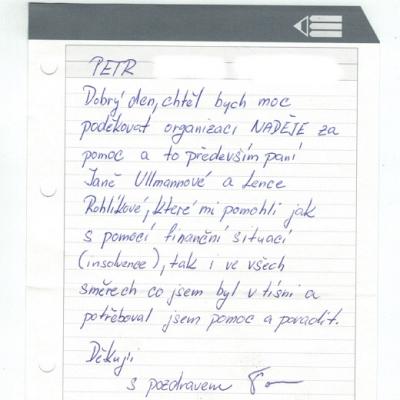 PETR
Dobrý den, chtěl bych moc
poděkovat organizaci NADĚJE za
pomoc a to především paní
Janě Ullmannové a Lence
Rohlíkové, které mi pomohli jak
s pomocí finanční situací
(insolvence), tak i ve všech
směrech co jsem byl v tísni a
potřeboval jsem pomoc a poradit.
Děkuji
s pozdravem